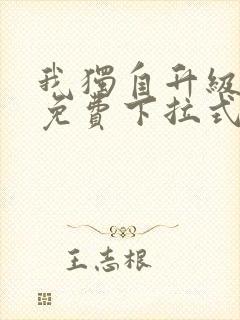 我獨自升級
免費下拉式
王志根